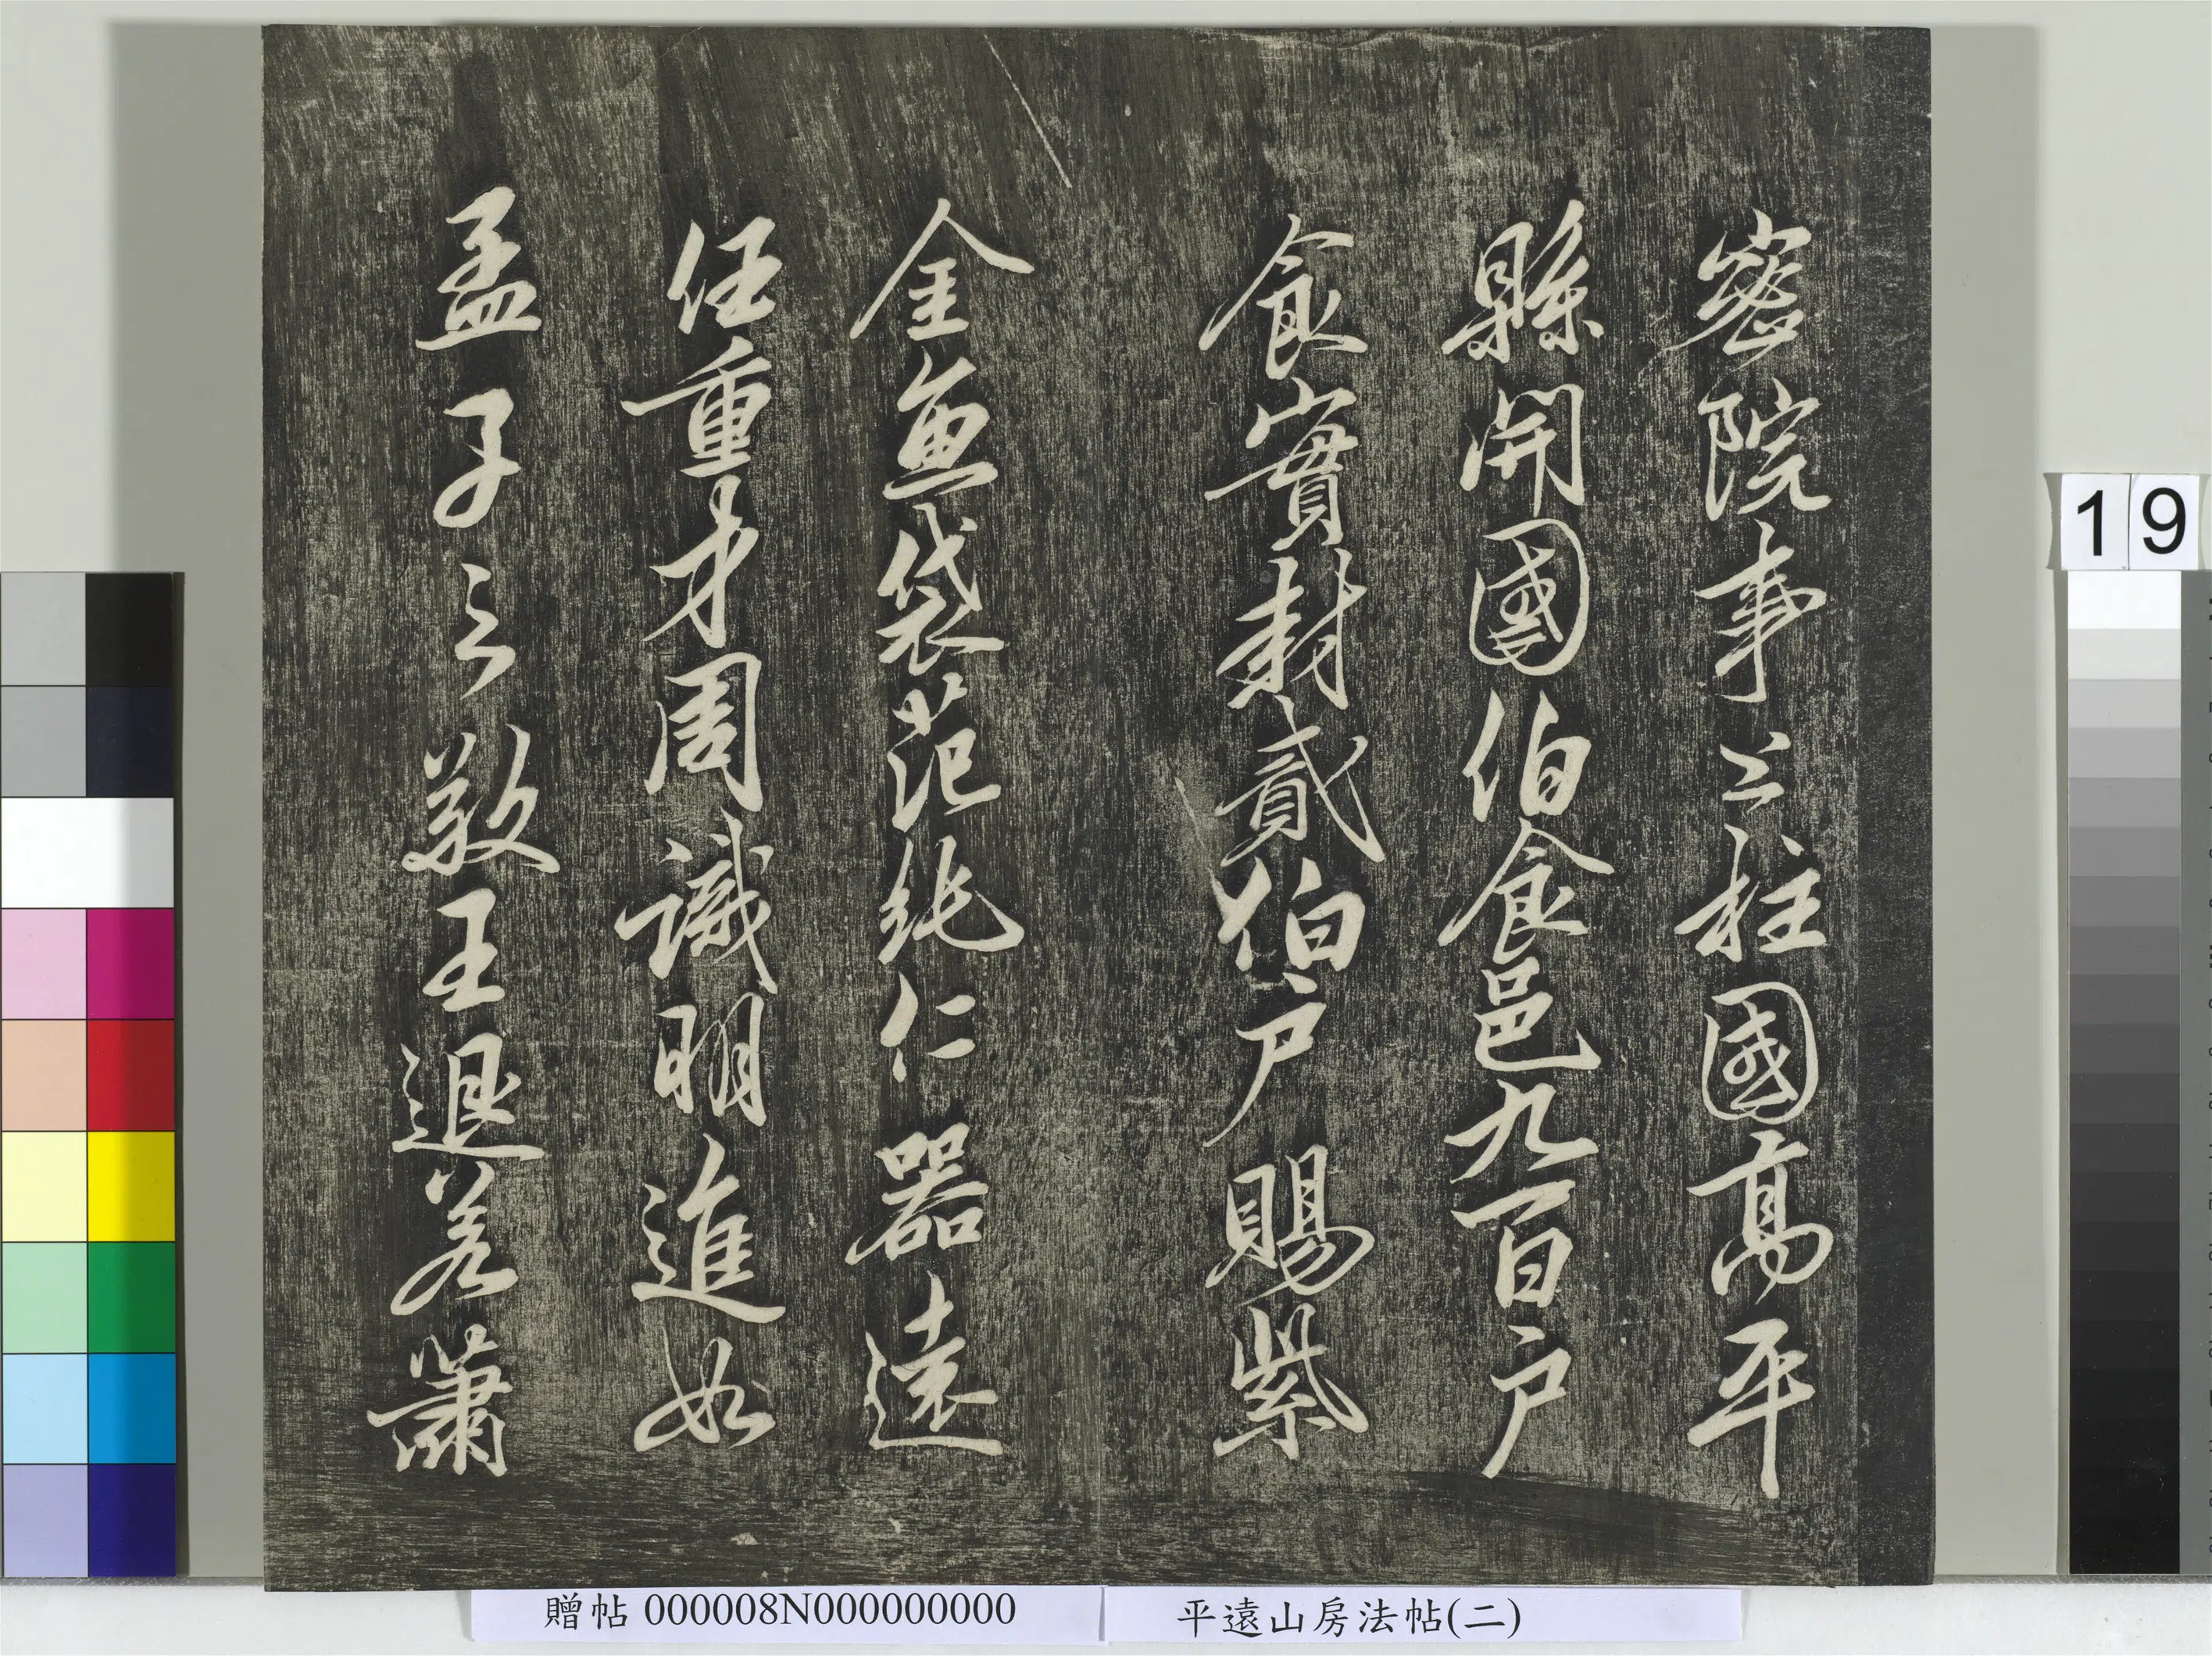 密院事上柱國高平
縣開國伯食邑九百戶
食實封貳伯戶賜紫
金魚袋范純仁器遠
任重才周識明進如
孟子之敬王退若蕭
19
贈帖 000008N000000000
平遠山房法帖(二)